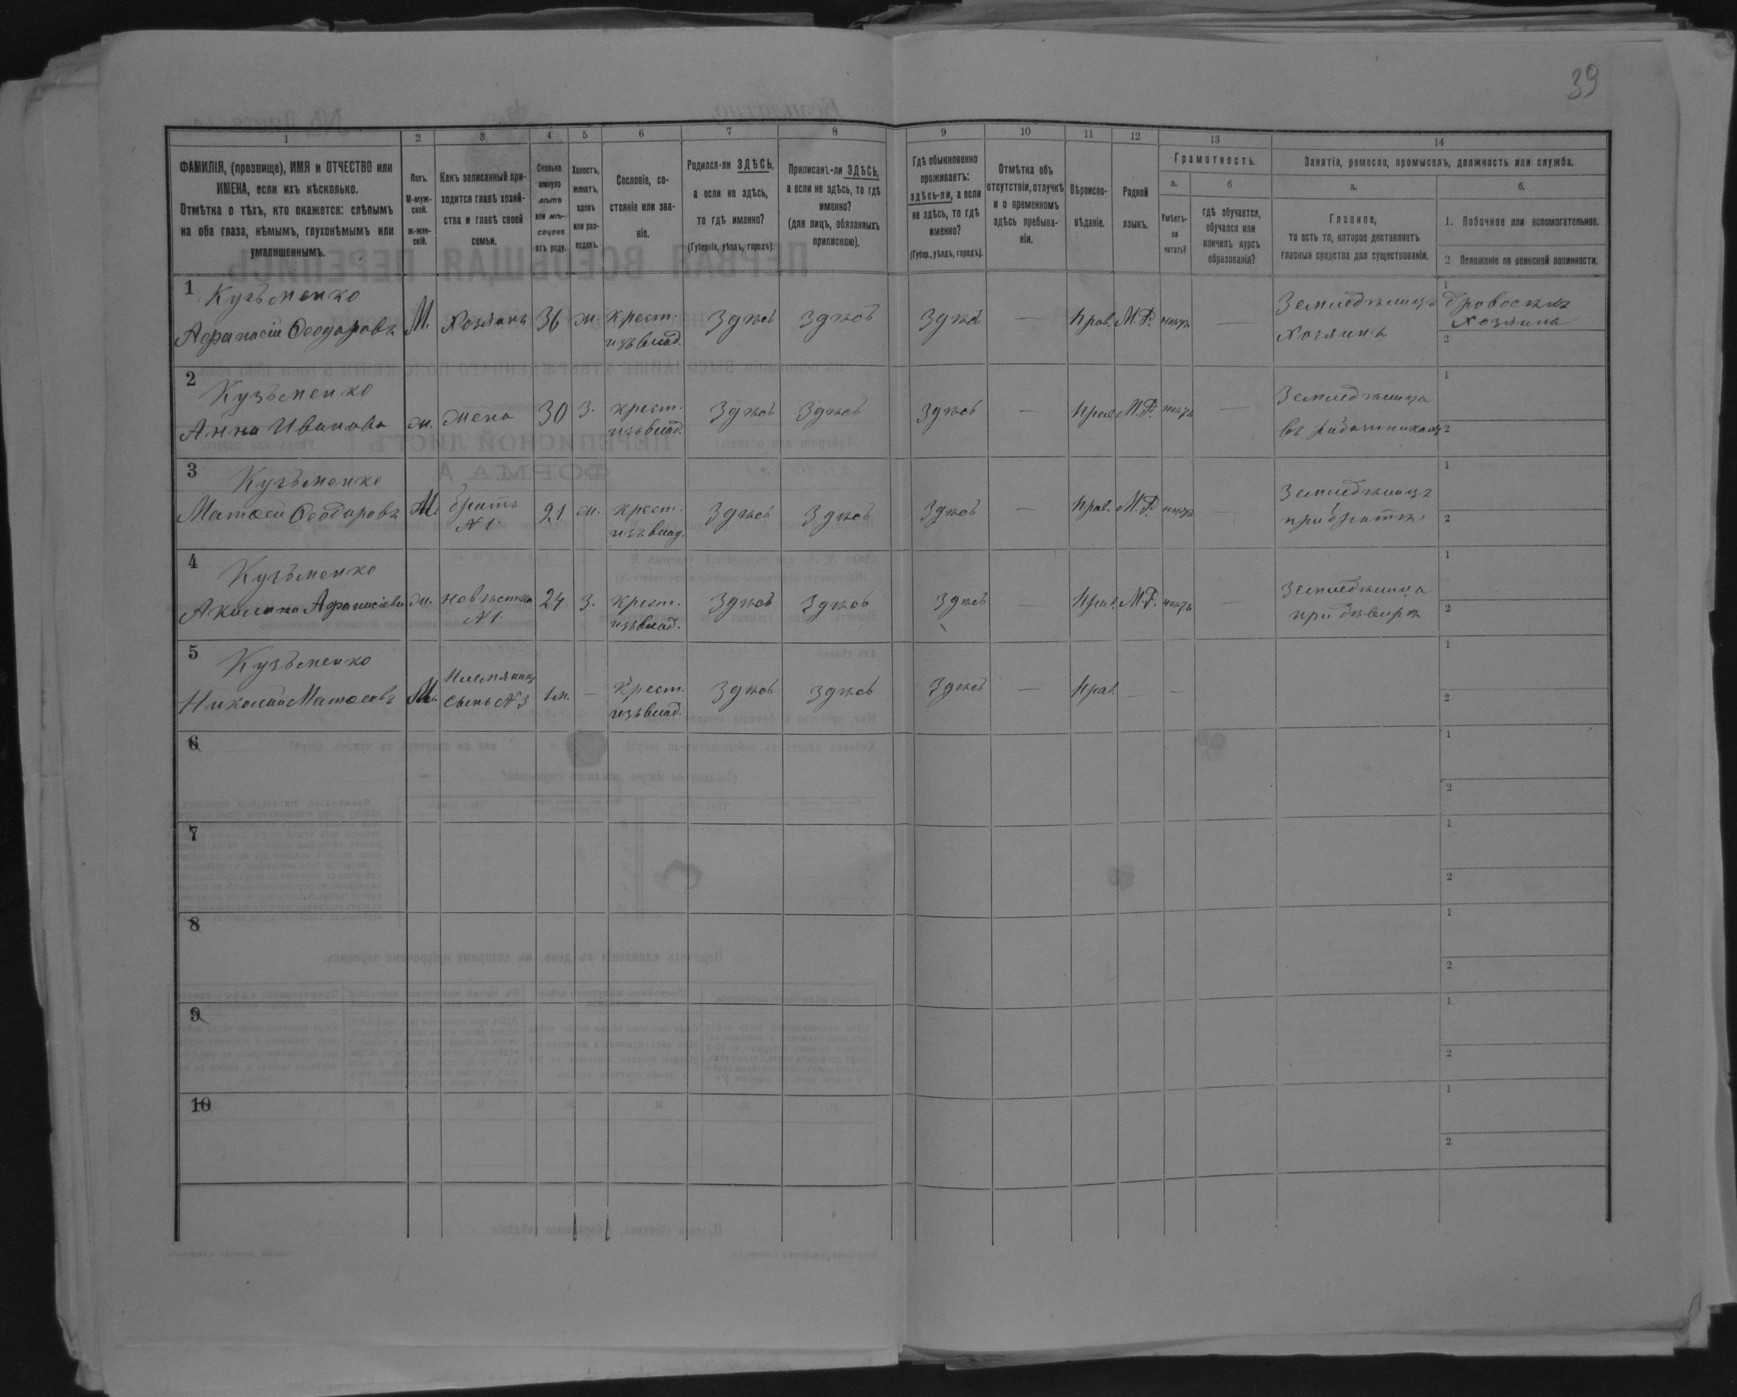 39
1 2 3 4 5 6 7 8 9 10 11 12 13 14
ФАМИЛІЯ, (прозвище), ИМЯ и ОТЧЕСТВО или
ИМЕНА, если ихъ нѣсколько.
Отмѣтка о тѣхъ, кто окажется: слѣпымъ
на оба глаза, нѣмымъ, глухонѣмымъ или
умалишеннымъ.
Полъ.
М-муж-
ской.
ж-жен-
скій.
Какъ записанный при-
ходится главѣ хозяй-
ства и главѣ своей
семьи.
Сколько
минуло
лѣтъ
или мѣ-
сяцевъ
отъ роду.
Холостъ,
женатъ,
вдовъ
или раз-
веденъ.
Сословіе, со-
стояніе или зва-
ніе.
Родился-ли ЗДѢСЬ,
а если не здѣсь,
то гдѣ именно?
(Губернія, уѣздъ, городъ).
Приписанъ-ли ЗДѢСЬ,
а если не здѣсь, то гдѣ
именно?
(для лицъ, обязанныхъ
припискою).
Гдѣ обыкновенно
проживаетъ:
здѣсь-ли, а если
не здѣсь, то гдѣ
именно?
(Губер., уѣздъ, городъ).
Отмѣтка объ
отсутствіи, отлучкѣ
и о временномъ
здѣсь пребыва-
ніи.
Вѣроиспо-
вѣданіе.
Родной
языкъ.
Грамотность.
а.
Умѣетъ-
ли
читать?
б
гдѣ обучается,
обучался или
кончилъ курсъ
образованія?
Занятіе, ремесло, промыселъ, должность или служба.
а.
Главное,
то есть то, которое доставляетъ
главныя средства для существованія.
б.
1. Побочное или вспомогательное.
2 Положеніе по воинской повинности.
1 Кузьменко
Афанасій Ѳеодоровъ М. Хозяинъ 36 ж. крест.
изъ влад. Здѣсь Здѣсь Здѣсь — Прав. М.Р. нѣтъ — Земледѣлецъ
Хозяинъ
1
Хозяинъ
2
2 Кузьменко
Анна Иванова ж. жена 30 з. крест.
изъ влад. Здѣсь Здѣсь Здѣсь — Прав. М.Р. нѣтъ — Земледѣлица
въ работникахъ
1
2
3 Кузьменко
Матвѣй Ѳеодоровъ М. братъ
№1. 21 ж. крест.
изъ влад. Здѣсь Здѣсь Здѣсь — Прав. М.Р. нѣтъ — Земледѣлецъ
при братѣ
1
2
4 Кузьменко
Акилина Афанасіева ж. невѣстка
№1. 24 з. крест.
изъ влад. Здѣсь Здѣсь Здѣсь — Прав. М.Р. нѣтъ — Земледѣлица
при деверѣ
1
2
5 Кузьменко
Николай Матвѣевъ М. Племяникъ
сынъ №3 1м. — Крест.
изъ влад. Здѣсь Здѣсь Здѣсь — Прав. —
1
2
6
1
2
7
1
2
8
1
2
9
1
2
10
1
2